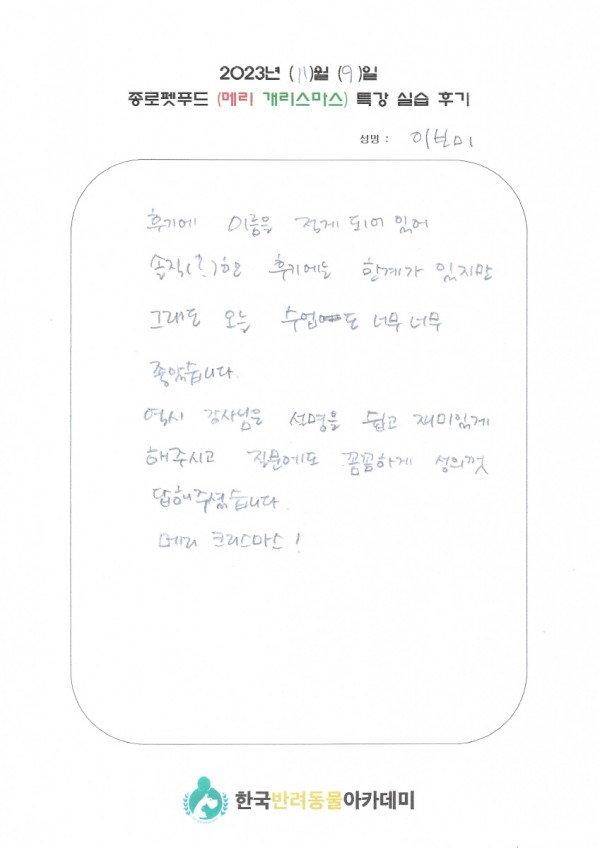 2023년 (11)월 (9)일
종로펫푸드 (메리 개리스마스) 특강 실습 후기
성명 : 이보미
후기에 이름을 적게 되어 있어
솔직(?)한 후기에는 한계가 있지만
그래도 오늘 수업도 너무 너무
좋았습니다.
역시 강사님은 설명을 쉽고 재미있게
해주시고 질문에도 꼼꼼하게 성의껏
답해주셨습니다
메리 크리스마스 !
한국반려동물아카데미